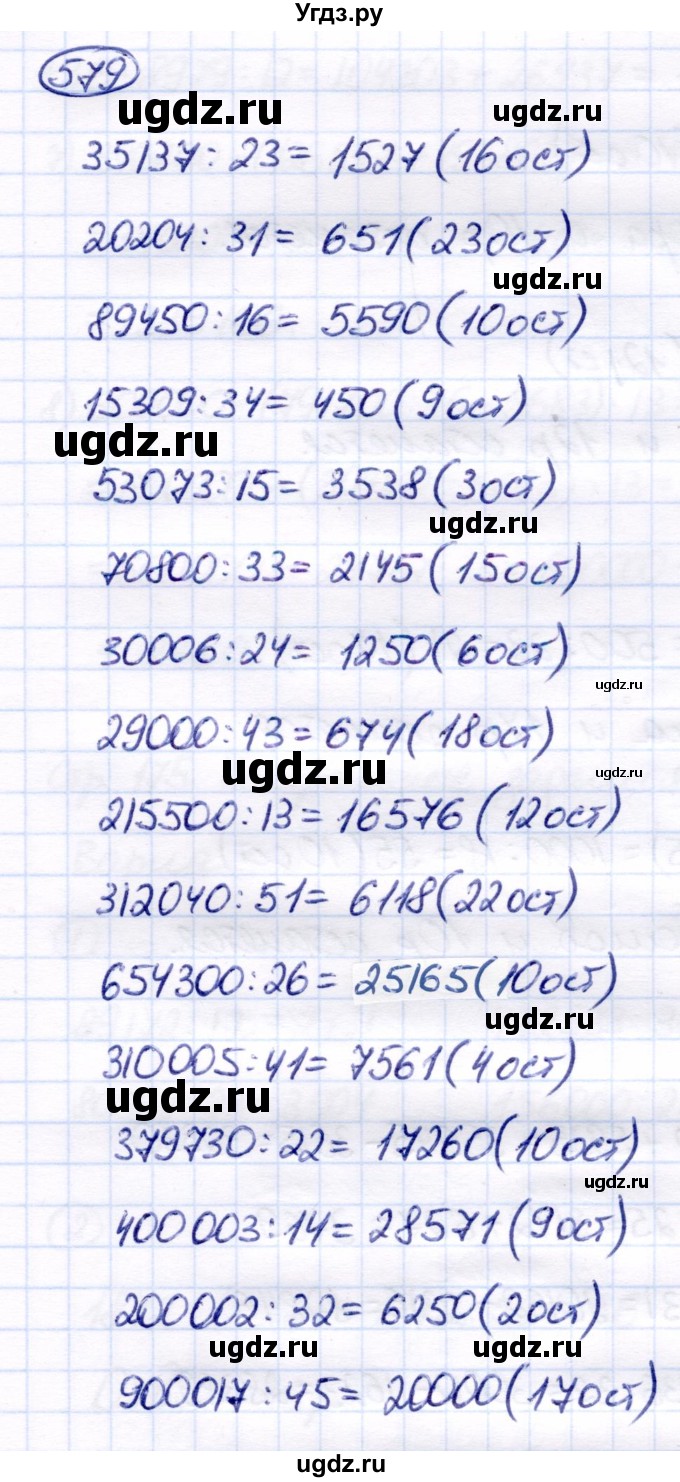 Угдз.ру
579
ugdz.ru ugdz.ru
35137 : 23 = 1527 (16 ост)
20204 : 31 = 651 (23 ост)
ugdz.ru
89450 : 16 = 5590 (10 ост)
15309 : 34 = 450 (9 ост)
ugdz.ru
53073 : 15 = 3538 (3 ост)
ugdz.ru
70800 : 33 = 2145 (15 ост)
30006 : 24 = 1250 (6 ост)
ugdz.ru
29000 : 43 = 674 (18 ост)
ugdz.ru ugdz.ru
215500 : 13 = 16576 (12 ост)
312040 : 51 = 6118 (22 ост)
654300 : 26 = 25165 (10 ост)
ugdz.ru
310005 : 41 = 7561 (4 ост)
ugdz.ru
379730 : 22 = 17260 (10 ост)
ugdz.ru
400003 : 14 = 28571 (9 ост)
200002 : 32 = 6250 (2 ост)
ugdz.ru ugdz.ru
900017 : 45 = 20000 (17 ост)
ugdz.ru